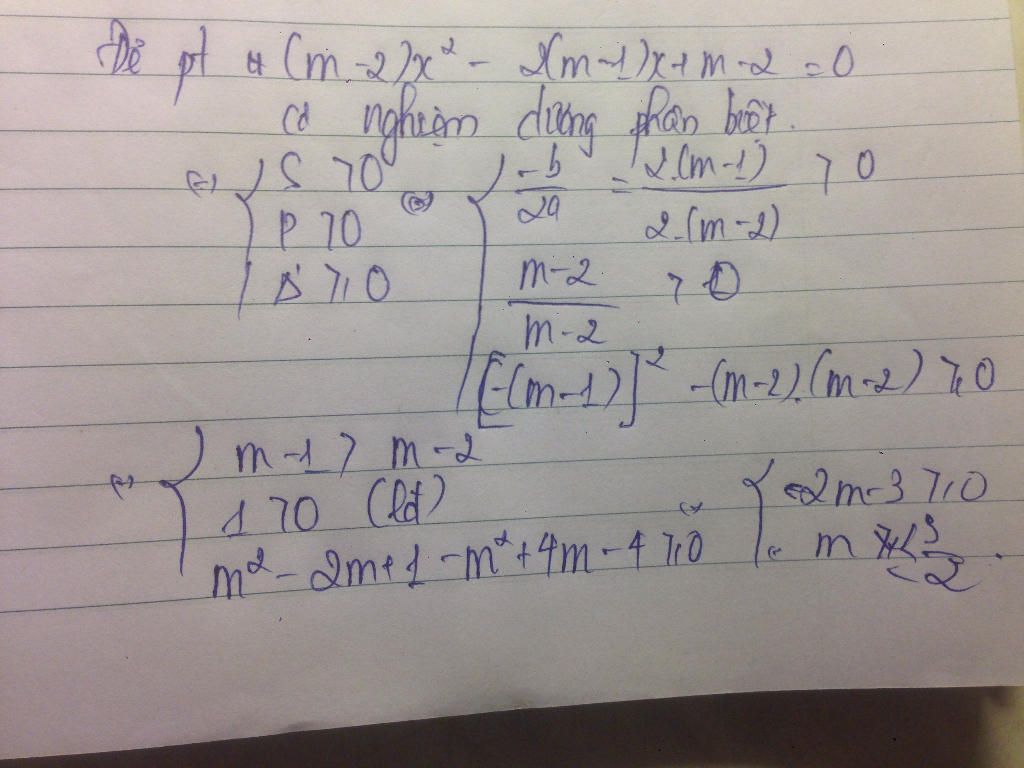 Để pt (m-2)x² - 2(m-1)x + m-2 = 0
có nghiệm dương phân biệt.
(=) { S > 0 (=) { -b/2a = 2.(m-1)/2.(m-2) > 0
P > 0
Δ' ≥ 0 m-2/m-2 > 0
[-(m-1)]² - (m-2).(m-2) ≥ 0
(=) { m-1 > m-2
1 > 0 (lđ) { 2m-3 ≥ 0
m² - 2m+1 - m² + 4m - 4 ≥ 0 m